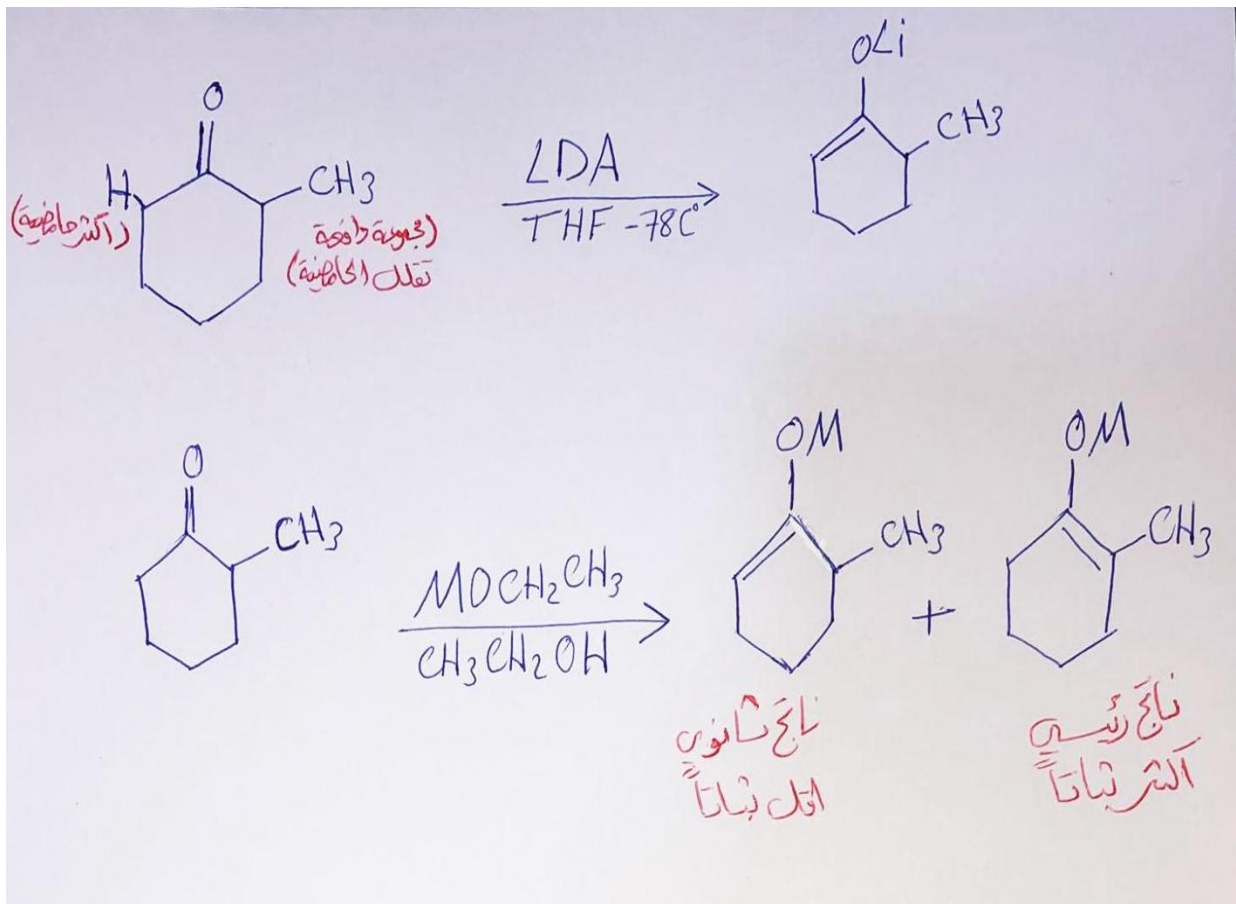 O
H
CH3
(أكثر حامضية)
(مجموعة دافعة
تقلل الحامضية)
LDA
THF -78C°
OLi
CH3
O
CH3
MOCH2CH3
CH3CH2OH
OM
CH3
+
OM
CH3
ناتج ثانوي
اقل ثباتاً
ناتج رئيسي
أكثر ثباتاً